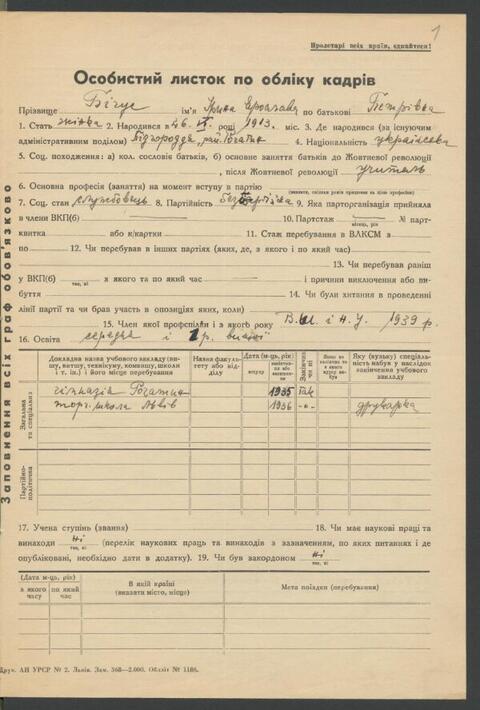 1
Пролетарі всіх країн, єднайтеся!
Особистий листок по обліку кадрів
Прізвище Бігус ім'я Ірина Ярослава по батькові Петрівна
1. Стать жінка 2. Народився в 26. VI. році 1913. міс. 3. Де народився (за існуючим
адміністративним поділом) Підгороддя, рай. Рогатин 4. Національність українська
5. Соц. походження: а) кол. сословіє батьків, б) основне заняття батьків до Жовтневої революції
, після Жовтневої революції учитель
6. Основна професія (заняття) на момент вступу в партію
(вказати, скільки років працював на цією професією)
7. Соц. стан службовець 8. Партійність Безпартійна 9. Яка парторганізація прийняла
в члени ВКП(б) 10. Партстаж № парт-
місяць, рік
квитка або к/картки 11. Стаж перебування в ВЛКСМ з
по 12. Чи перебував в інших партіях (яких, де, з якого і по який час)
13. Чи перебував раніш
у ВКП(б) з якого та по який час і причини виключення або ви-
так, ні
буття 14. Чи були хитання в проведенні
лінії партії та чи брав участь в опозиціях яких, коли)
15. Член якої профспілки і з якого року В.Ш. і Н.У. 1939 р.
16. Освіта середня і 1 р. вищої
Докладна назва учбового закладу (ви-
шу, витшу, технікуму, комвишу, школи
і т. ін.) і його місце перебування
Назва факуль-
тету або від-
ділу
Дата (м-ць, рік)
вступу
закінчен-
ня або
виключен-
ня
Закінчив
так чи ні
Яку (вузьку) спеціаль-
ність набув у наслідок
закінчення учбового
закладу
Загальна
та спеціальна
гімназія Рогатин 1935 так
торг. школа Львів 1936 -"- друкарка
Партійно-
політична
Заповнення всіх граф обов'язково
17. Учена ступінь (звання) 18. Чи має наукові праці та
винаходи ні (перелік наукових праць та винаходів з зазначенням, по яких питаннях і де
так, ні
опубліковані, необхідно дати в додатку). 19. Чи був закордоном ні
так, ні
(Дата м-ць, рік)
з якого
часу
по який
час
В якій країні
(вказати місто, місце)
Мета поїздки (перебування)
Друк. АН УРСР № 2. Львів. Зам. 368—2.000. Обліт № 1186.